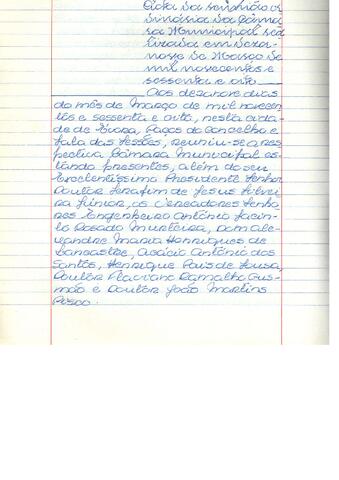 Acta da reunião or
dinária da Câma
ra Municipal rea
lizada em deza-
nove de Março de
mil novecentos e
sessenta e oito.
Aos dezanove dias
do mês de Março de mil novecen
tos e sessenta e oito, nesta cida
de de Évora, Paços do Concelho e
Sala das Sessões, reuniu-se a res
pectiva Câmara Municipal es
tando presentes, além do seu
Excelentíssimo Presidente Senhor
Doutor Serafim de Jesus Silvei
ra Júnior, os Vereadores Senho
res Engenheiro António Jacin
to Rosado Murteira, Dom Ale-
xandre Maria Henriques de
Lancastre, Acácio António dos
Santos, Henrique Pais de Sousa,
Doutor Flaviano Ramalho Gus-
mão e Doutor João Martins